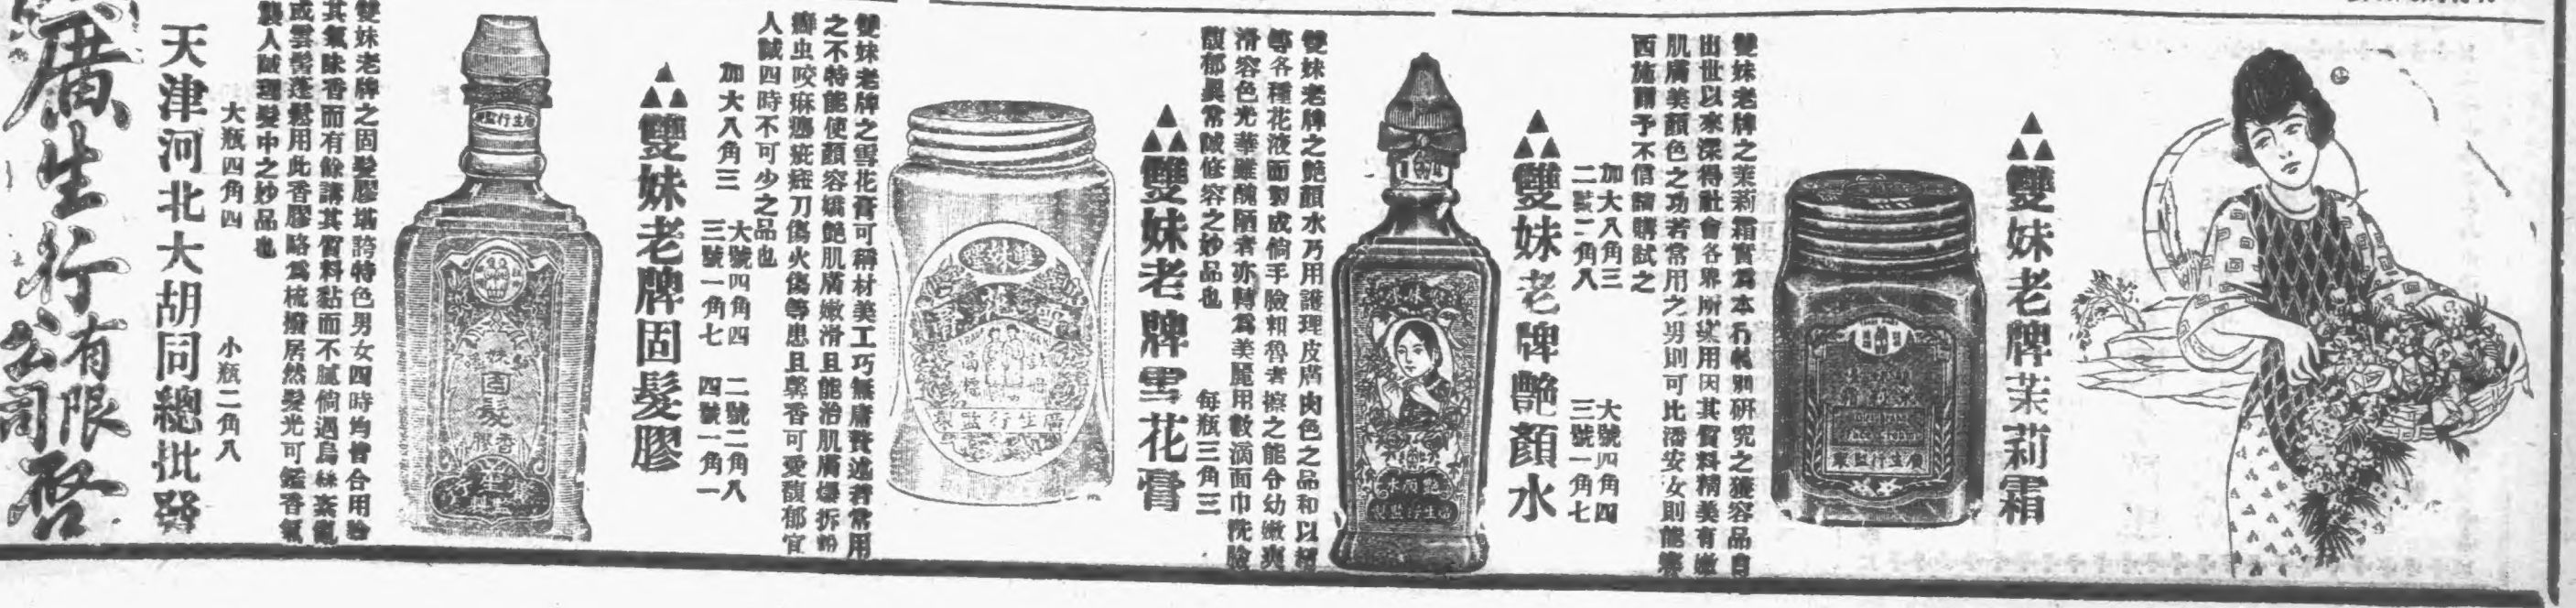 雙妹老牌茉莉霜
雙妹老牌之茉莉霜實爲本行特別研究之獲容品自
出世以來深得社會各界所樂用因其質料精美有嫩
肌膚美顏色之功若常用之男則可比潘安女則能賽
西施爾予不信請購試之
加大八角三 大號四角四
二號二角八 三號一角七
雙妹老牌艷顏水
雙妹老牌之艷顏水乃用護理皮膚肉色之品和以
等各種花液而製成倘手臉粗魯者擦之能令幼嫩爽
滑容色光華雖醜陋者亦轉爲美麗用數滴面巾洗臉
馥郁異常誠修容之妙品也
每瓶三角三
雙妹老牌雪花膏
雙妹老牌之雪花膏可稱材美工巧無庸贅述者常用
之不特能使顏容嬌艷肌膚嫩滑且能治肌膚爆拆粉
癬虫咬痳瘋疵痤刀傷火傷等患且馨香可愛馥郁宜
人誠四時不可少之品也
加大八角三 大號四角四 二號二角八
三號一角七 四號一角一
雙妹老牌固髮膠
雙妹老牌之固髮膠堪誇特色男女四時均曾合用
其氣味香而有餘講其質料黏而不膩倘遇烏絲紊亂
或雲鬢蓬鬆用此香膠略爲梳掠居然髮光可鑑香氣
襲人誠理髮中之妙品也
大瓶四角四 小瓶二角八
天津河北大胡同總批發
廣生行有限公司啓
廣生行監製
固髮
香膠
廣生行監製
廣生行監製